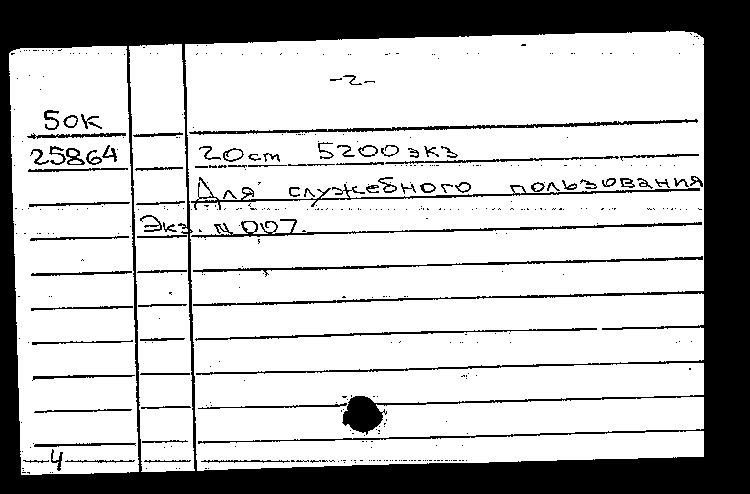 -2-
50к
25864 20ст 5200экз
Для служебного пользования
Экз. №007.
4